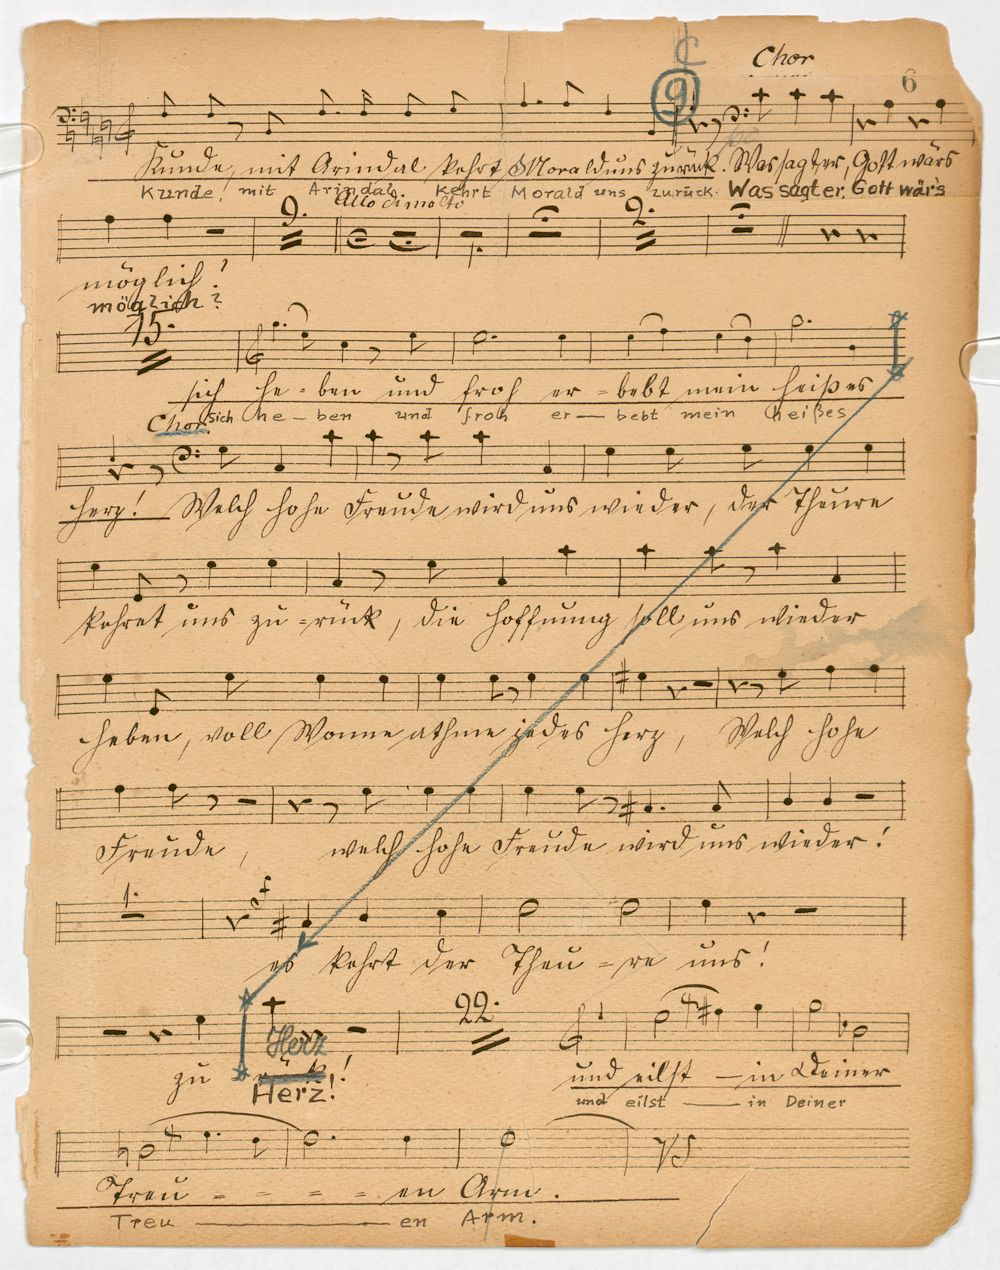 C
Chor
9
6
Kunde, mit Arindal kehrt Morald uns zurück. Was sagt er, Gott wärs
Kunde, mit Arindal kehrt Morald uns zurück. Was sagt er, Gott wär's
9. Allo di molto 2.
möglich!
möglich?
15.
sich he-ben und froh er-bebt mein heißes
sich he-ben und froh er-bebt mein heißes
Chor.
Herz! Welch hohe Freude wird uns wieder, der Theure
kehret uns zu-rück, die Hoffnung soll uns wieder
heben, voll Wonne athme jedes Herz, Welch hohe
Freude, welch hohe Freude wird uns wieder!
1.
f
es kehrt der Theu-re uns!
22.
Herz
zu rück! und eilst — in Deiner
Herz! und eilst — in Deiner
VS
Treu - - - - en Arm.
Treu — en Arm.